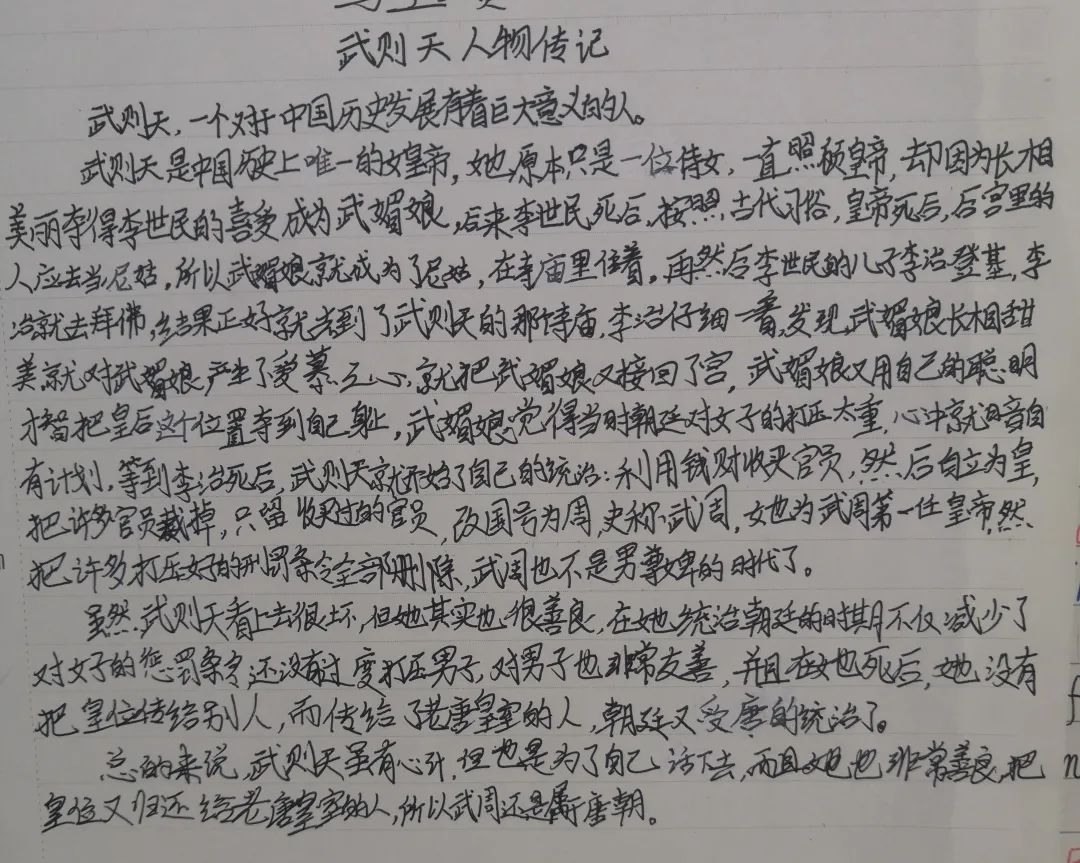 武则天人物传记
武则天,一个对于中国历史发展有着巨大意义的人。
武则天是中国历史上唯一的女皇帝,她原本只是一位侍女,一直照顾皇帝,却因为长相
美丽夺得李世民的喜爱成为武媚娘,后来李世民死后,按照古代习俗,皇帝死后,后宫里的
人应去当尼姑,所以武媚娘就成为了尼姑,在寺庙里住着。再然后李世民的儿子李治登基,李
治就去拜佛,结果正好就去到了武则天的那侍庙,李治仔细一看,发现武媚娘长相甜
美就对武媚娘产生了爱慕之心,就把武媚娘又接回了宫,武媚娘又用自己的聪明
才智把皇后这个位置夺到自己身上,武媚娘觉得当时朝廷对女子的打压太重,心中就暗自
有计划,等到李治死后,武则天就开始了自己的统治:利用钱财收买官员,然后自立为皇,
把许多官员裁掉,只留收买过的官员,改国号为周,史称武周,她也为武周第一任皇帝,然
把许多打压女子的刑罚条令全部删除,武周也不是男尊女卑的时代了。
虽然武则天看上去很坏,但她其实也很善良,在她统治朝廷的时期不仅减少了
对女子的惩罚条令,还没有过度打压男子,对男子也非常友善,并且在她死后,她没有
把皇位传给别人,而传给了老唐皇室的人,朝廷又受唐的统治了。
总的来说,武则天虽有心计,但也是为了自己活下去,而且她也非常善良,把
皇位又归还给老唐皇室的人,所以武周还是属于唐朝。